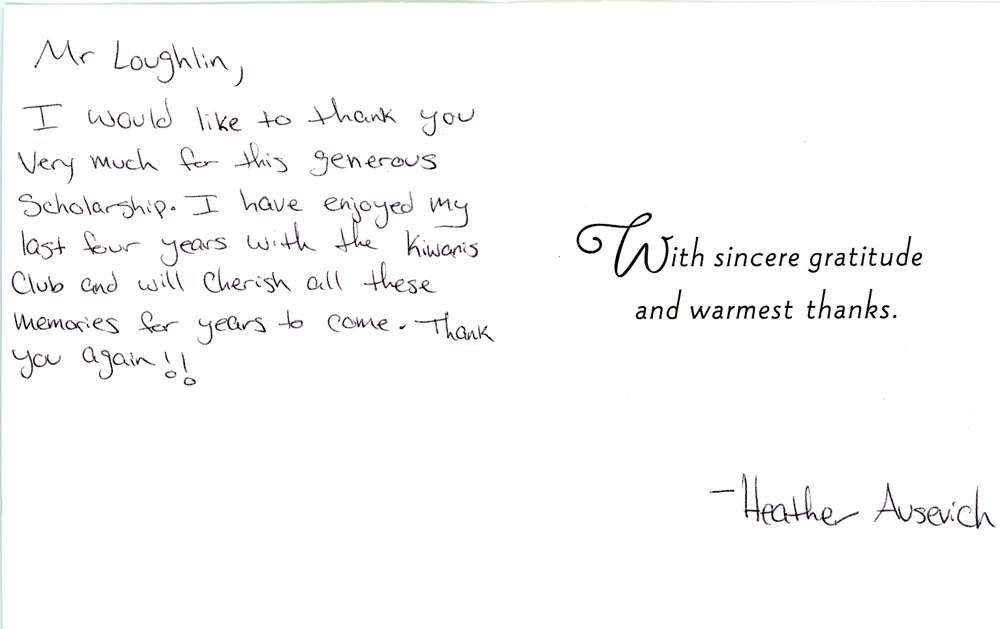 Mr Loughlin,
I would like to thank you
Very much for this generous
Scholarship. I have enjoyed my
last four years with the Kiwanis
Club and will Cherish all these
Memories for years to come. Thank
you again!!
With sincere gratitude
and warmest thanks.
- Heather Ausevich